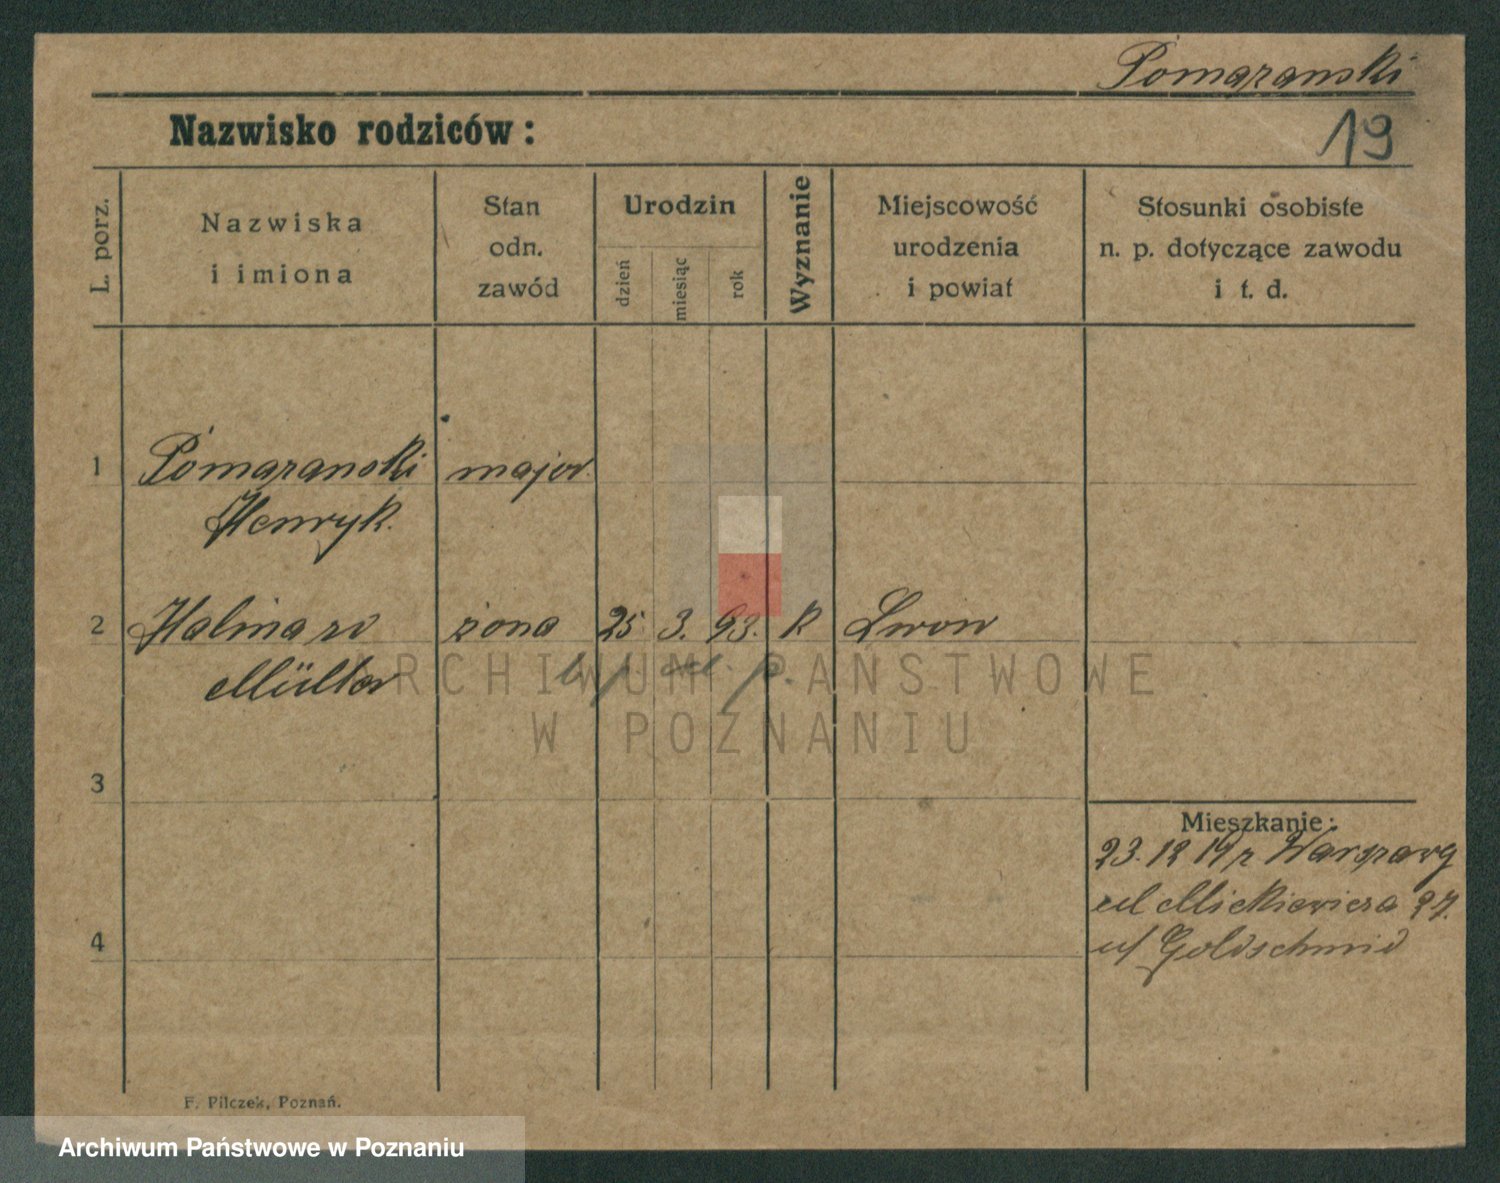 Pomarański
Nazwisko rodziców:
19
L. porz.
Nazwiska
i imiona
Stan
odn.
zawód
Urodzin
dzień
miesiąc
rok
Wyznanie
Miejscowość
urodzenia
i powiat
Stosunki osobiste
n. p. dotyczące zawodu
i t. d.
1 Pomarański major.
Henryk.
2 Halina zd żona 25 3. 93. k Lwow
Müller
ARCHIWUM PAŃSTWOWE
W POZNANIU
3
Mieszkanie:
23. 12 19 z Warszawy
ul Mickiewicza 27.
u/ Goldschmid
4
F. Pilczek, Poznań.
Archiwum Państwowe w Poznaniu